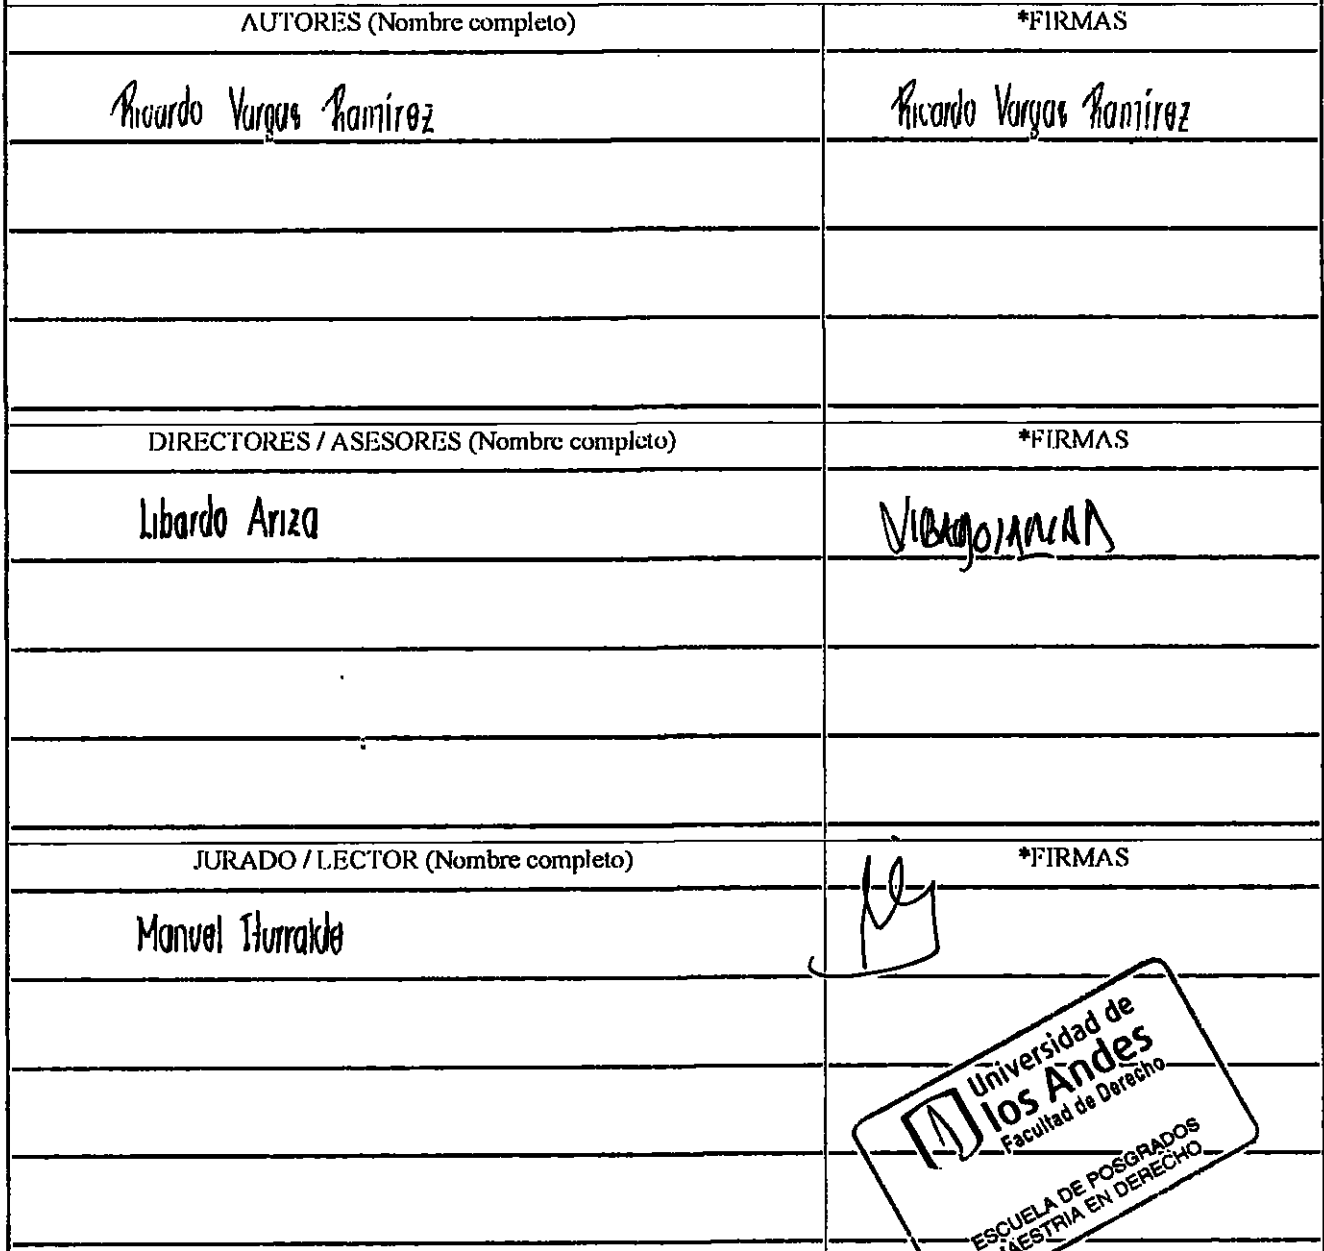 AUTORES (Nombre completo) *FIRMAS
Ricardo Vargas Ramírez Ricardo Vargas Ramírez
DIRECTORES / ASESORES (Nombre completo) *FIRMAS
Libardo Ariza
JURADO / LECTOR (Nombre completo) *FIRMAS
Manuel Iturralde
Universidad de
los Andes
Facultad de Derecho
ESCUELA DE POSGRADOS
MAESTRIA EN DERECHO